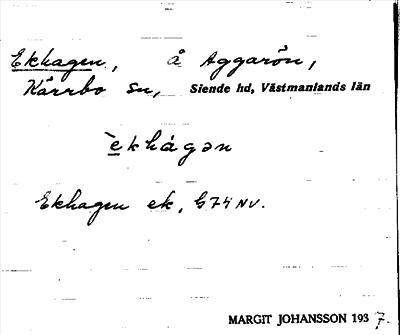 Ekhagen, å Aggarön,
Kärrbo sn, Siende hd, Västmanlands län
èkhágən
Ekhagen ek, G74 NV.
MARGIT JOHANSSON 1937.